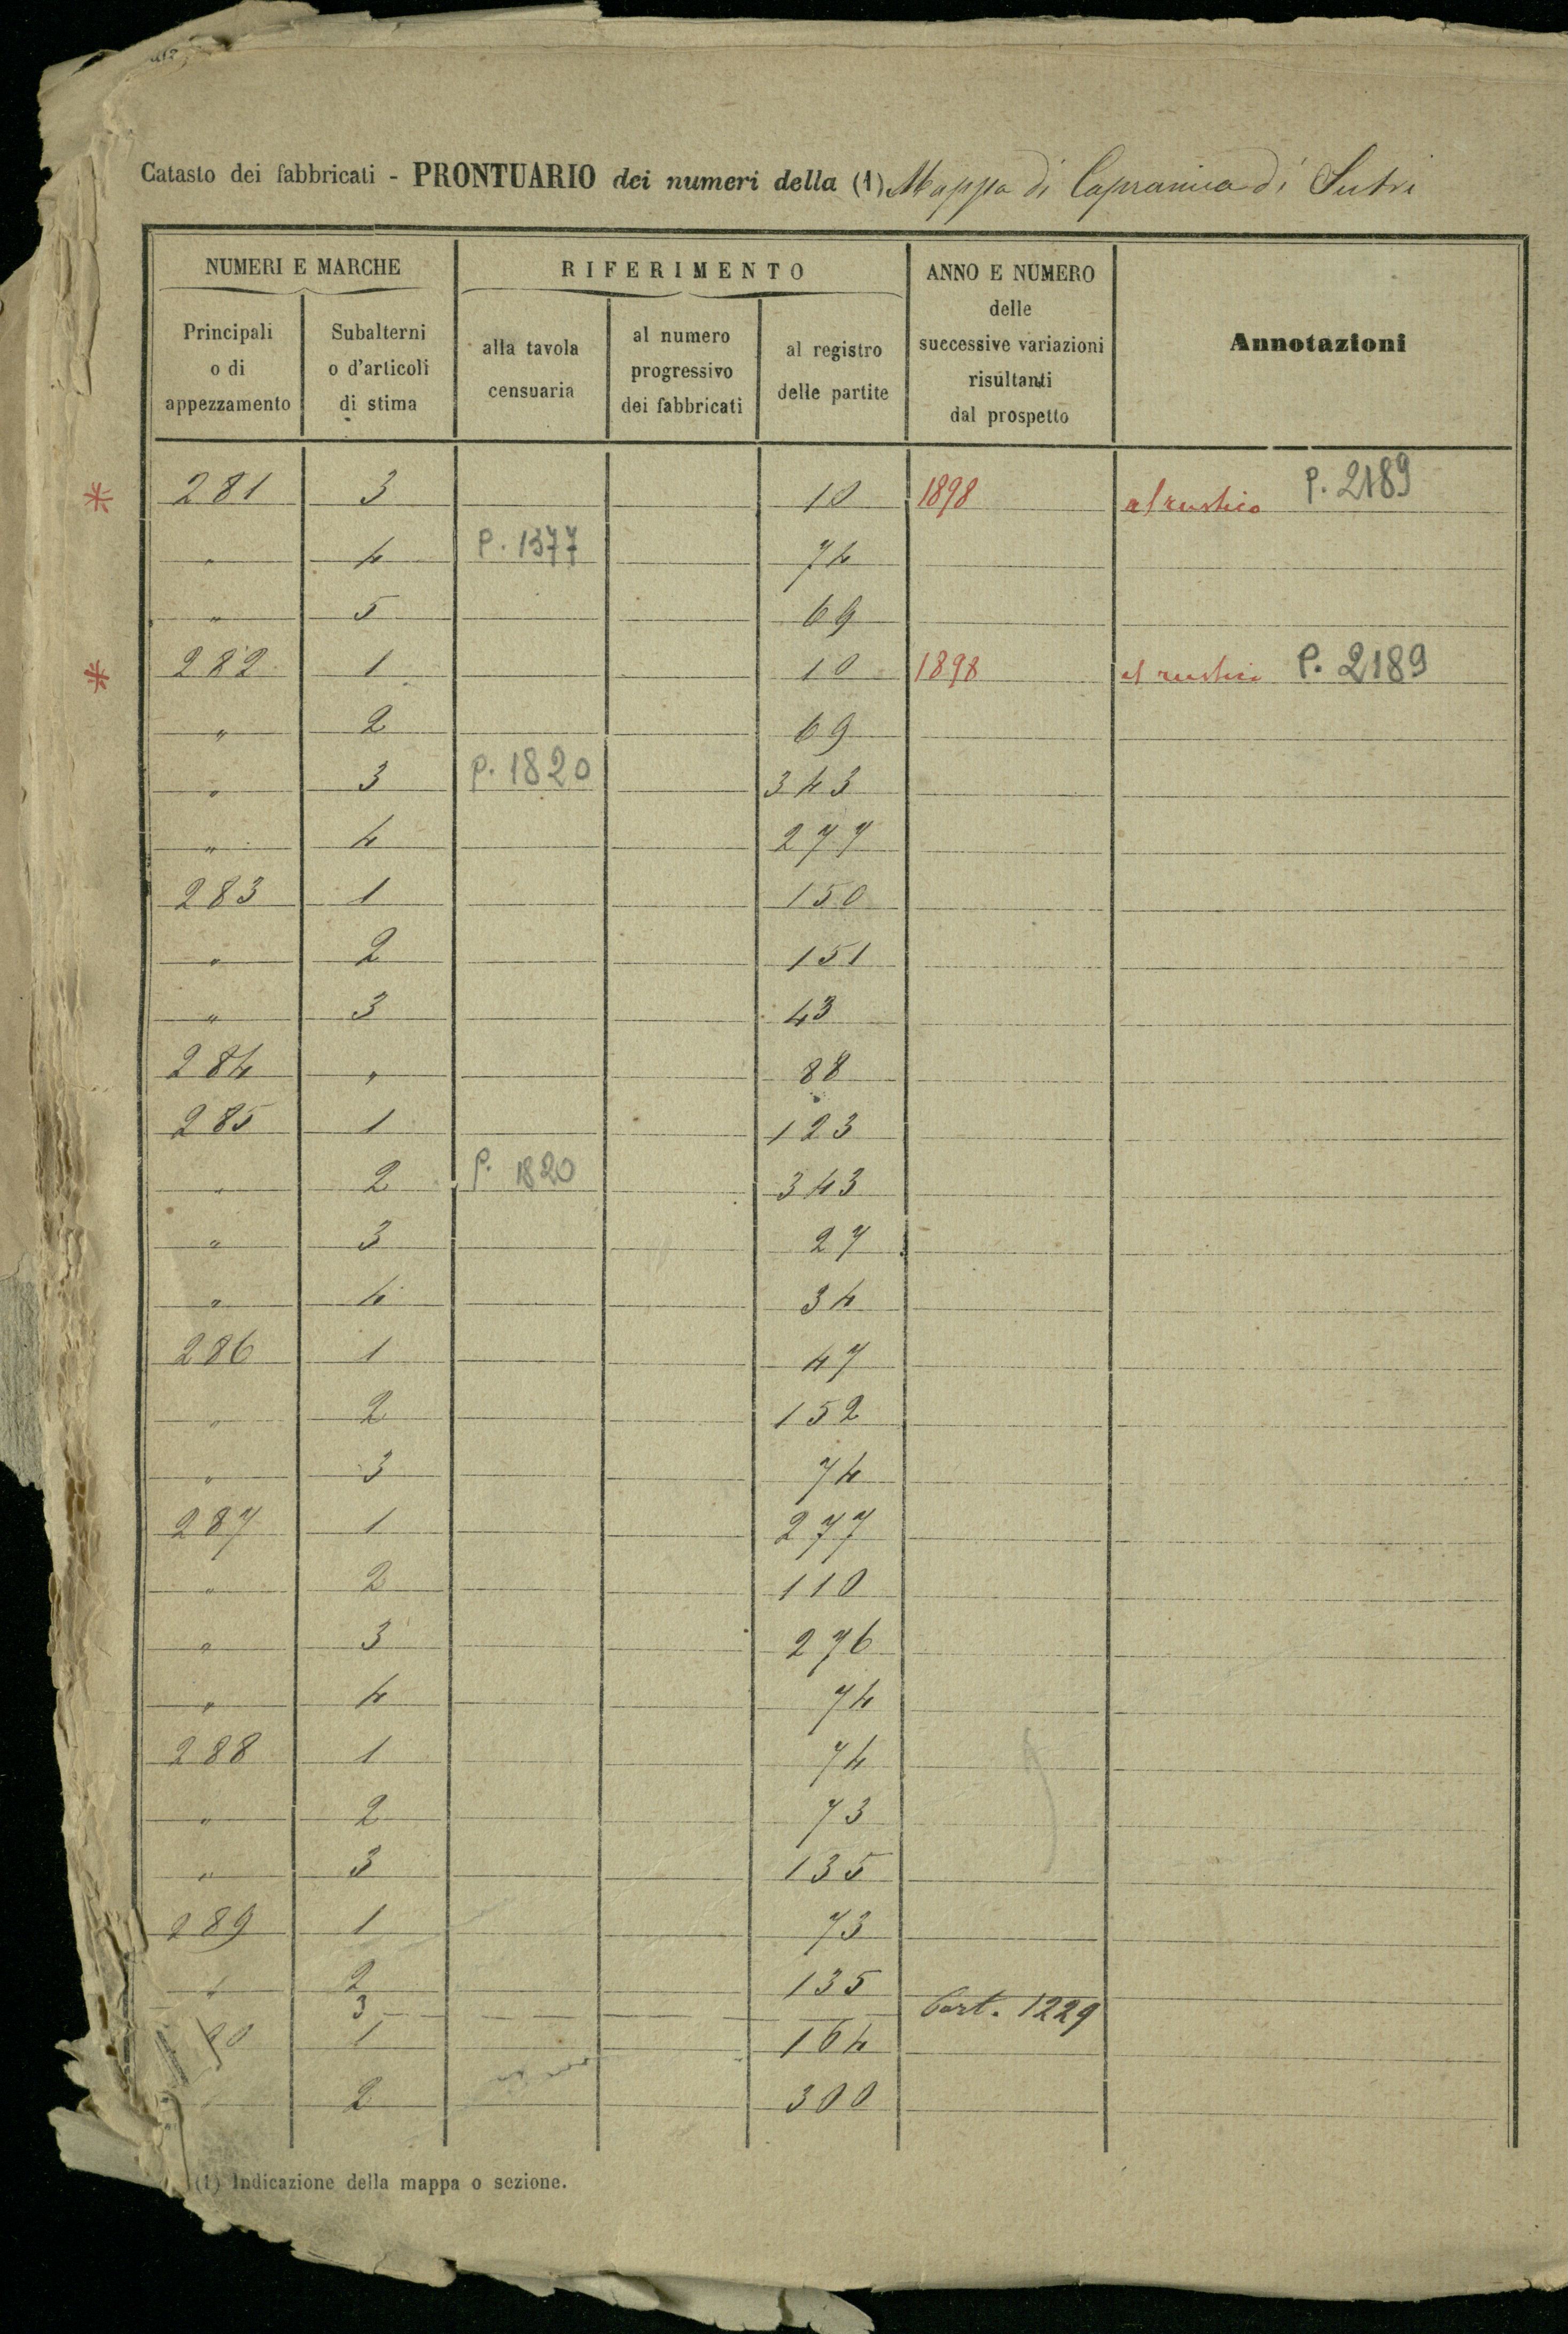 Catasto dei fabbricati - PRONTUARIO dei numeri della (1) Mappa di Capranica di Sutri
NUMERI E MARCHE RIFERIMENTO ANNO E NUMERO delle successive variazioni risultanti dal prospetto Annotazioni
Principali o di appezzamento Subalterni o d'articoli di stima alla tavola censuaria al numero progressivo dei fabbricati al registro delle partite
* 281 3 10 1898 al rustico P. 2189
" 4 P. 1377 74
" 5 69
* 282 1 10 1898 al rustico P. 2189
" 2 69
" 3 P. 1820 343
" 4 277
283 1 150
" 2 151
" 3 43
284 " 88
285 1 123
" 2 P. 1820 343
" 3 27
" 4 34
286 1 47
" 2 152
" 3 74
287 1 277
" 2 110
" 3 276
" 4 74
288 1 74
" 2 73
" 3 135
289 1 73
" 2 135
3 Part. 1229
90 1 164
2 300
(1) Indicazione della mappa o sezione.